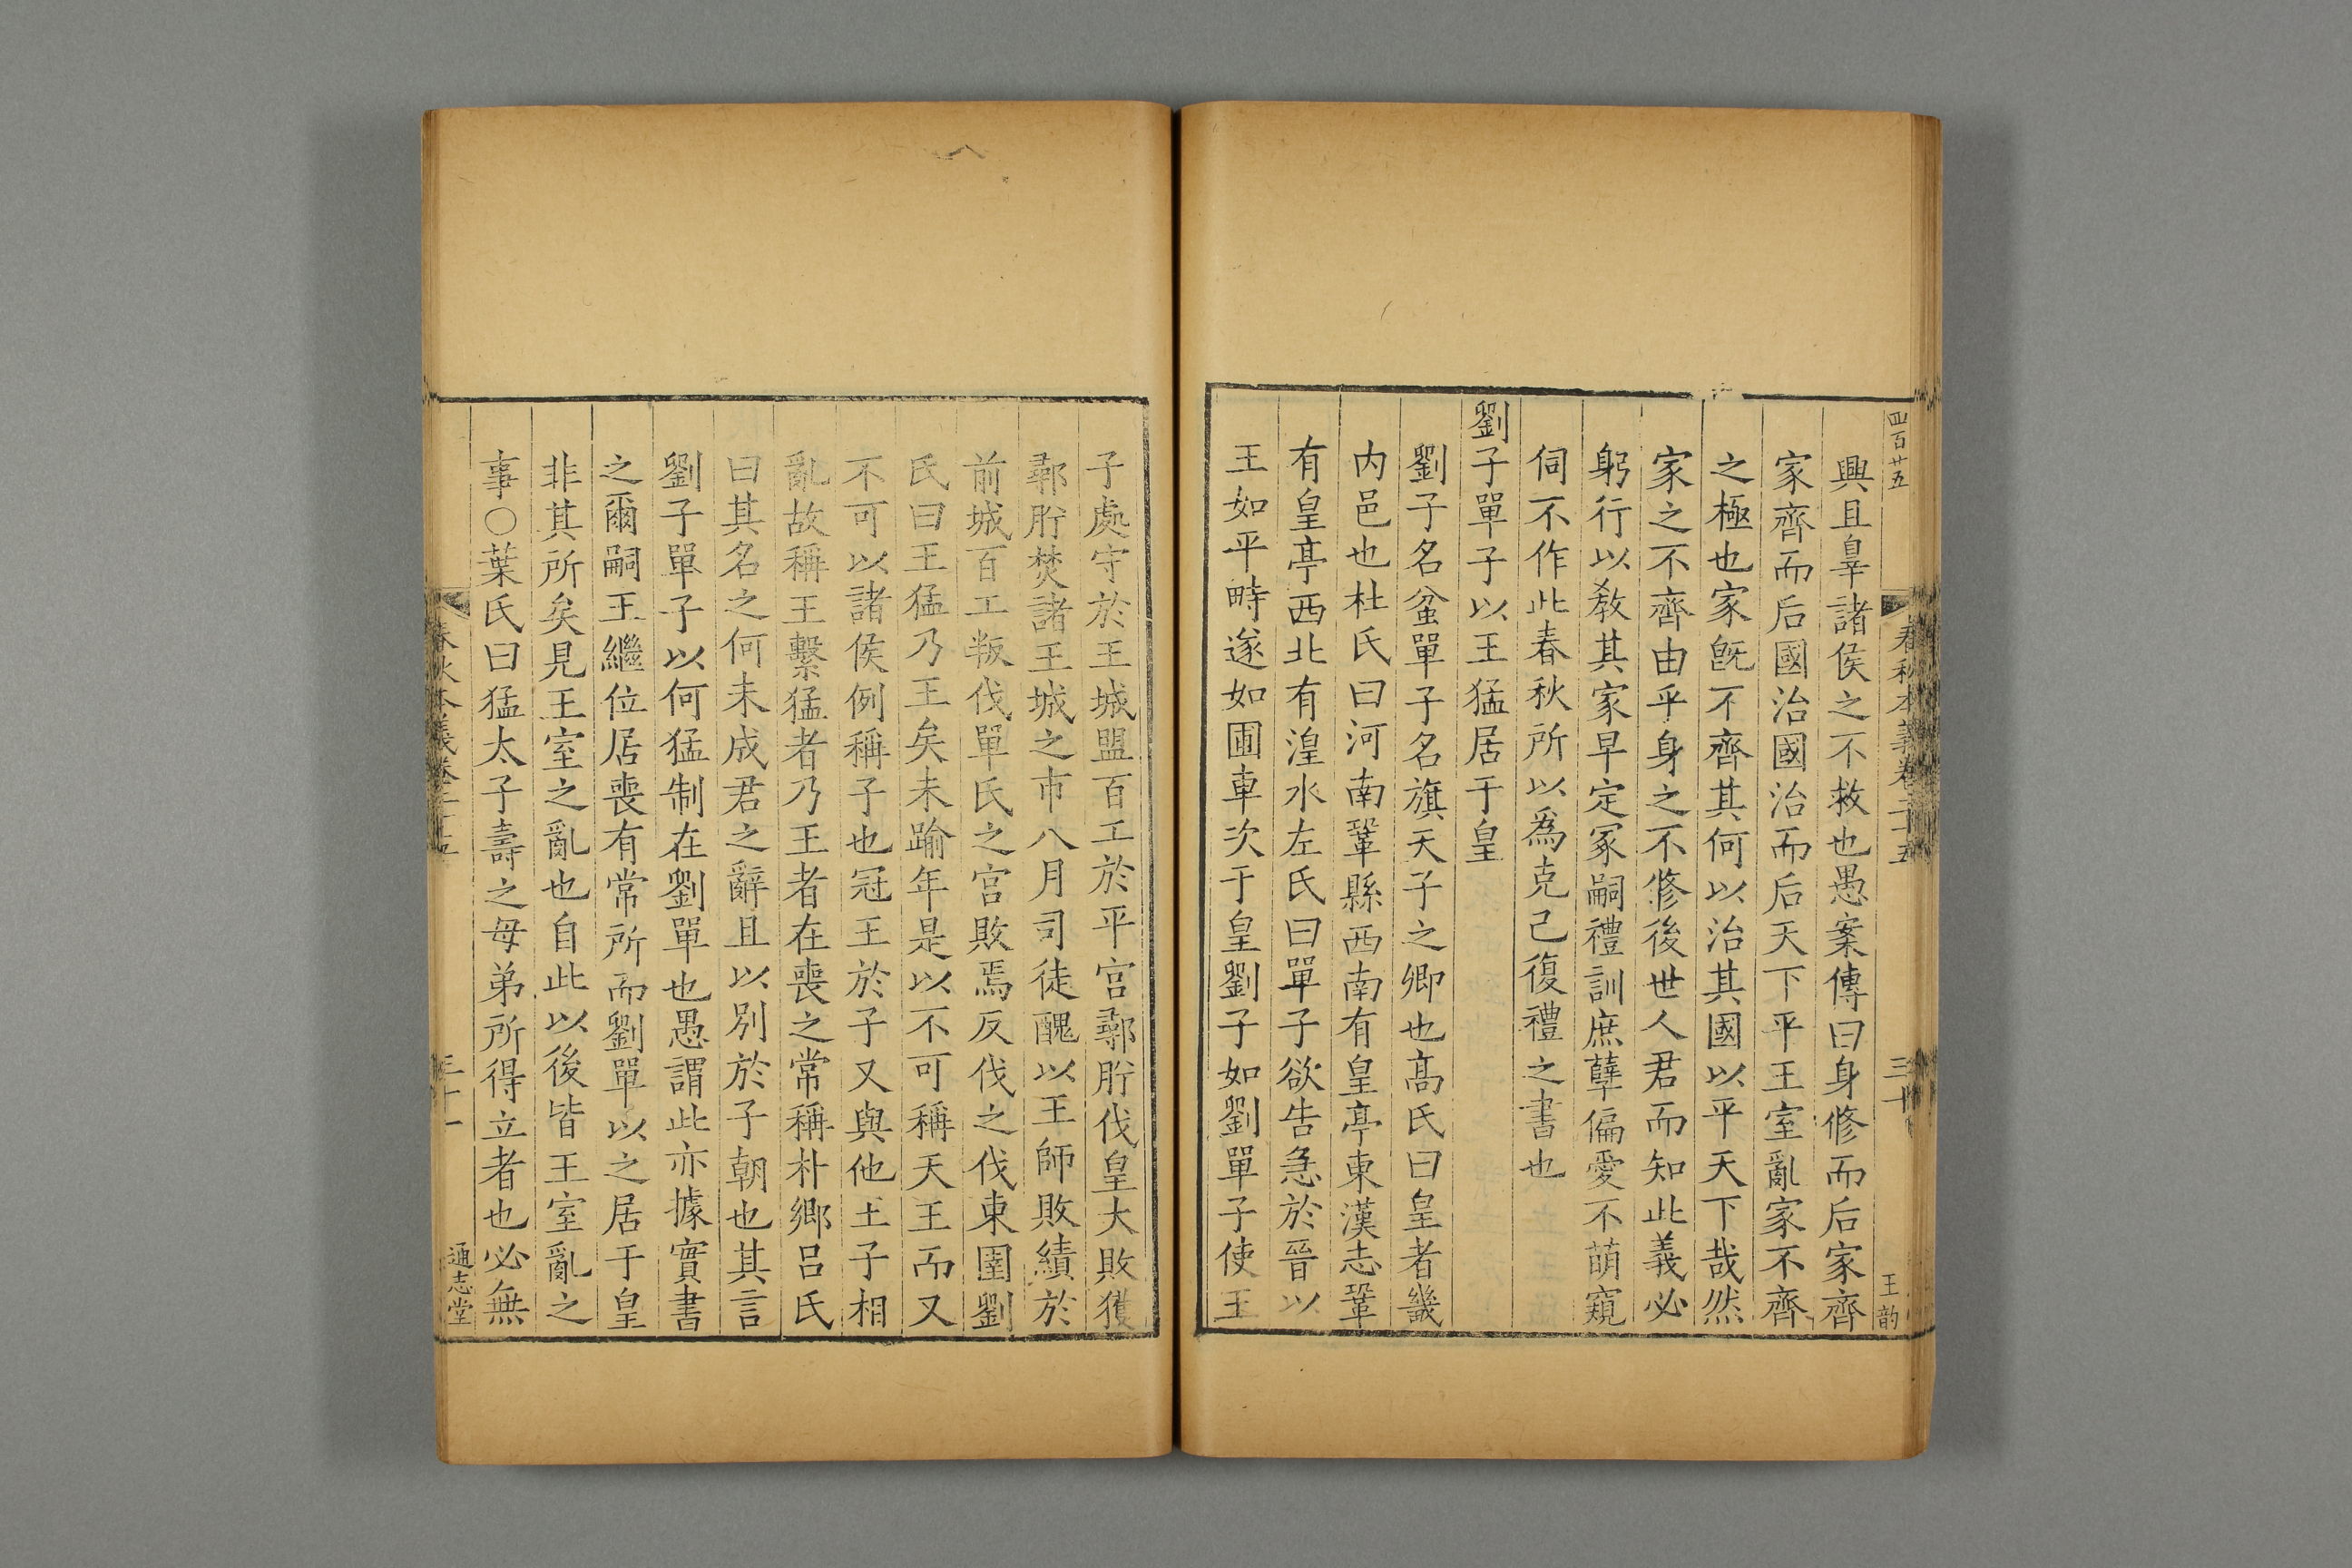 四百廿五
春秋本義卷二十五
三十
王韵
興且辠諸侯之不救也愚案傳曰身修而后家齊
家齊而后國治國治而后天下平王室亂家不齊
之極也家旣不齊其何以治其國以平天下哉然
家之不齊由乎身之不修後世人君而知此義必
躬行以敎其家早定冢嗣禮訓庶孽偏愛不萌窺
伺不作此春秋所以為克己復禮之書也
劉子單子以王猛居于皇
劉子名蚠單子名旗天子之卿也髙氏曰皇者畿
内邑也杜氏曰河南鞏縣西南有皇亭東漢志鞏
有皇亭西北有湟水左氏曰單子欲告急於晉以
王如平畤遂如圃車次于皇劉子如劉單子使王
子處守於王城盟百工於平宫鄩肸伐皇大敗獲
鄩肸焚諸王城之市八月司徒醜以王師敗績於
前城百工叛伐單氏之宫敗焉反伐之伐東圉劉
氏曰王猛乃王矣未踰年是以不可稱天王而又
不可以諸侯例稱子也冠王於子又與他王子相
亂故稱王繫猛者乃王者在喪之常稱朴鄉吕氏
曰其名之何未成君之辭且以别於子朝也其言
劉子單子以何猛制在劉單也愚謂此亦據實書
之爾嗣王繼位居喪有常所而劉單以之居于皇
非其所矣見王室之亂也自此以後皆王室亂之
事〇葉氏曰猛太子壽之母弟所得立者也必無
春秋本義卷二十五
三十一
通志堂